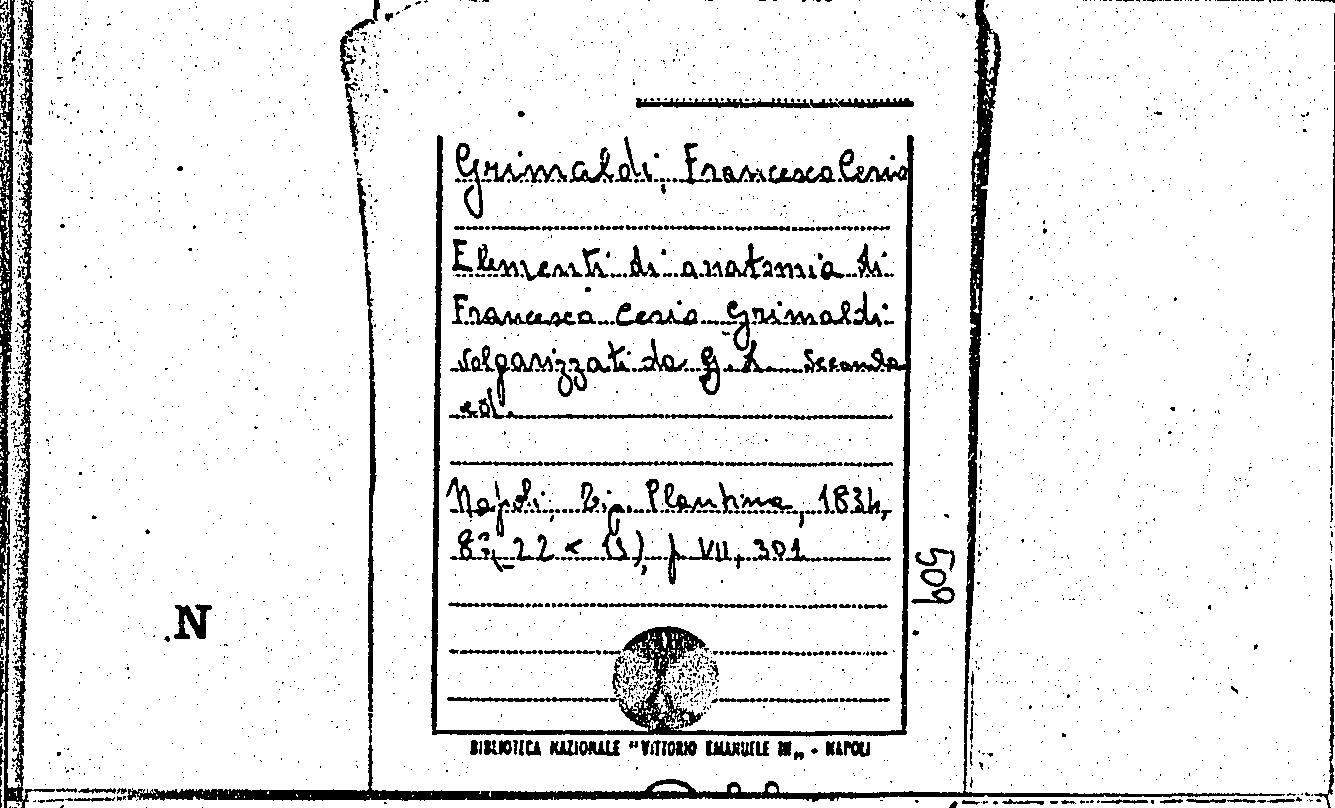 Grimaldi, Francesco Cerio
Elementi di anatomia di
Francesco Cerio Grimaldi
volgarizzati da G. L. Seconda
ed.
Napoli, Tip. Plantina, 1834,
8°, 22 (1), p VII, 301
509
N
BIBLIOTECA NAZIONALE "VITTORIO EMANUELE III„ - NAPOLI